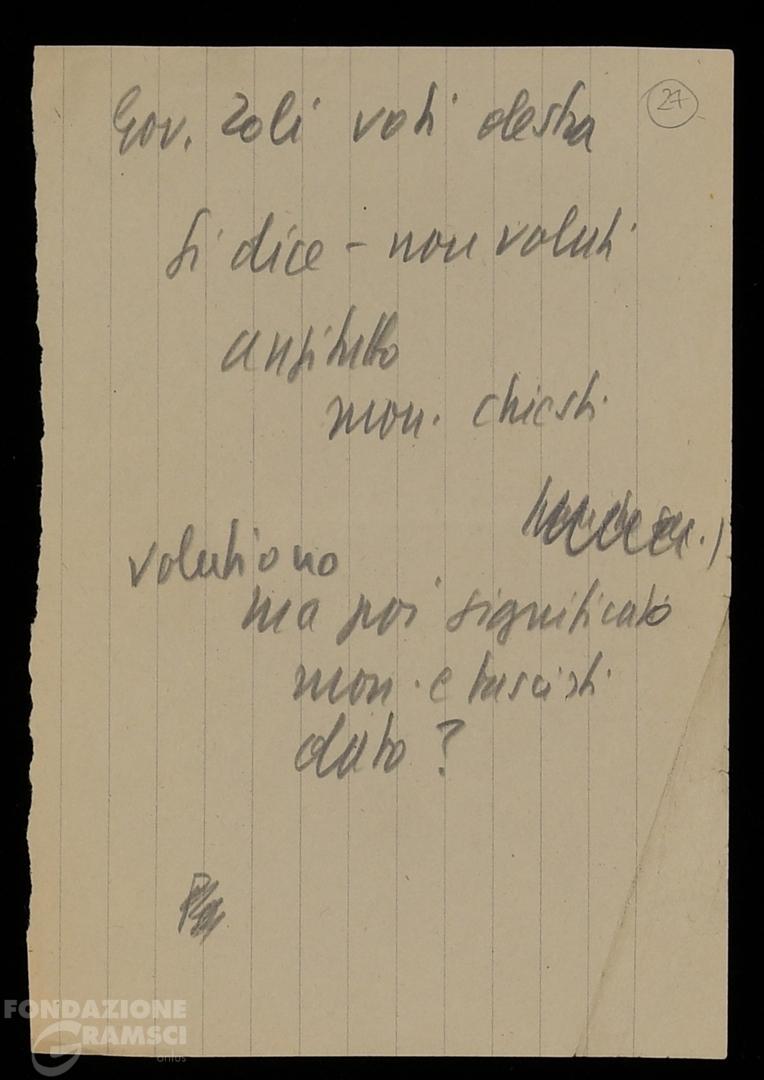 27
Gov. Zoli voti destra
Si dice - non voluti
anzitutto
mon. chiesti
voluti o no
ma poi significato
mon. e fascisti
dato?
FONDAZIONE
GRAMSCI
onlus